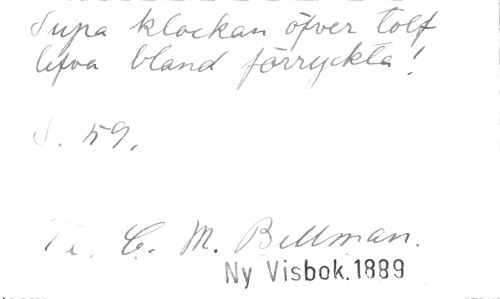 Supa klockan öfver tolf
lefva bland förryckta!
S. 59.
Ti. C. M. Bellman.
Ny Visbok.1889